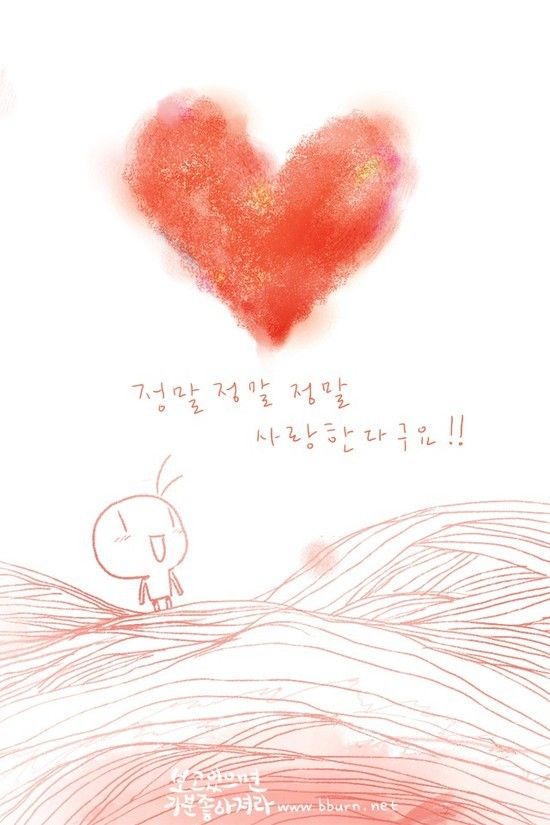 정말 정말 정말
사랑한다구요!!
보고있으면
기분좋아져라 www.bburn.net